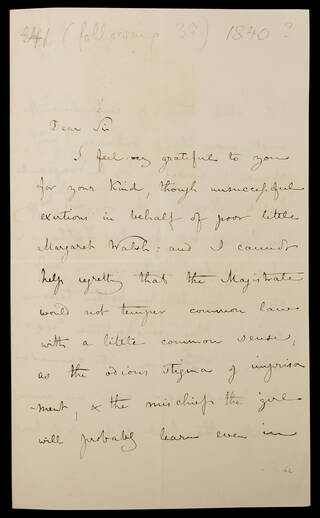 E41 (following 39) 1840?
Dear Sir
I feel very grateful to you
for your Kind, though unsuccessful
exertions in behalf of poor little
Margaret Walsh: and I cannot
help regretting that the Magistrate
would not temper common law
with a little common sense,
as the odious stigma of imprison
-ment, & the mischief the girl
will probably learn even in
a